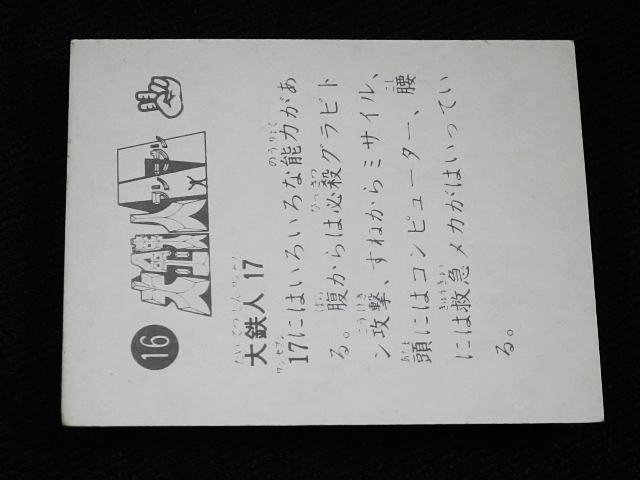 16
大鉄人17
ワンセブン
大鉄人17
17にはいろいろな能力があ
る。腹からは必殺グラビト
ン攻撃、すねからミサイル、
頭にはコンピューター、腰
には救急メカがはいってい
る。